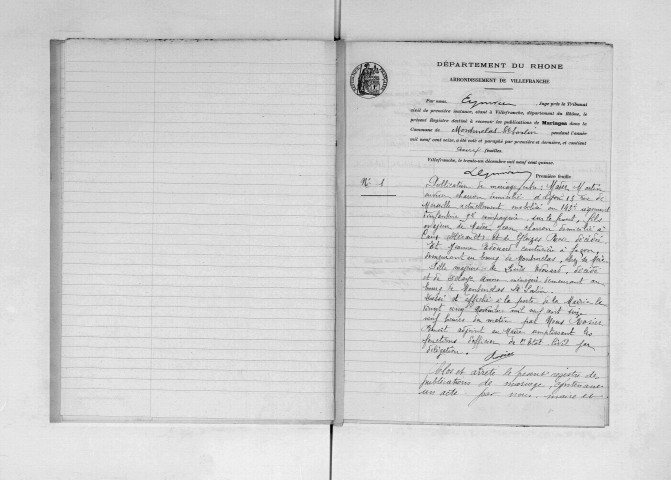 DÉPARTEMENT DU RHONE
ARRONDISSEMENT DE VILLEFRANCHE
Par nous, Juge près le Tribunal
civil de première instance, séant à Villefranche, département du Rhône, le
présent Registre destiné à recevoir les publications de Mariages dans la
Commune de Montmelas St Sorlin pendant l'année
mil neuf cent seize, a été coté et paraphé par première et dernière, et contient
deux feuilles.
Villefranche, le trente-un décembre mil neuf cent quinze.
Première feuille
N° 1
Publication de mariage entre : Maser
ouvrier charron domicilié à Lyon 13 rue de
Marseille actuellement mobilisé au 142e régiment
d'infanterie 9e compagnie sur le front, fils
majeur de Jean charron domicilié à
(Hérault) et de Rose décédée
Et Jeanne couturière à façon,
demeurant au bourg de Montmelas, chez sa Mère
fille majeure de Louis décédé
et de ménagère demeurant au
bourg de Montmelas St Sorlin
et affiché à la porte de la Mairie le
vingt Novembre mil neuf cent seize
neuf heures du matin par Nous
Benoit adjoint au Maire remplissant les
fonctions d'officier de l'état civil par
délégation.
Clos et arrêté le présent registre de
publications de mariage, contenant
un acte par nous, maire et